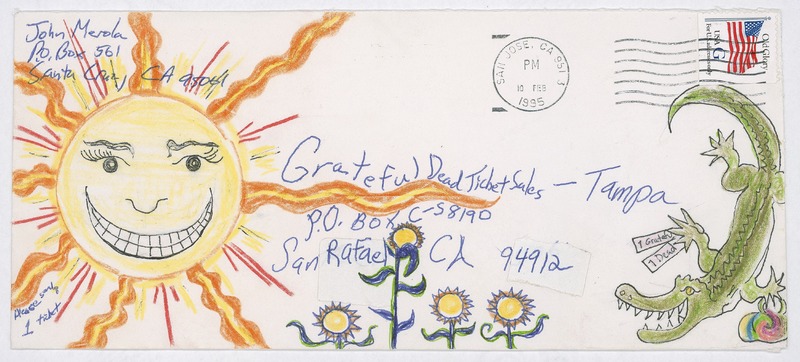 John Merola
P.O. Box 561
Santa Cruz, CA 95061
SAN JOSE, CA 951 3
PM
10 FEB
1995
Old Glory
USA G
For U.S. addresses only
Grateful Dead Ticket Sales — Tampa
P.O. Box C-S8190
San Rafael CA 94912
1 Grateful
1 Dead
Please send
1 ticket